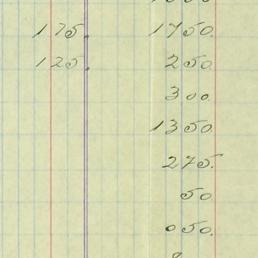 175. 1750.
125. 250
300.
1350
275.
50
050.